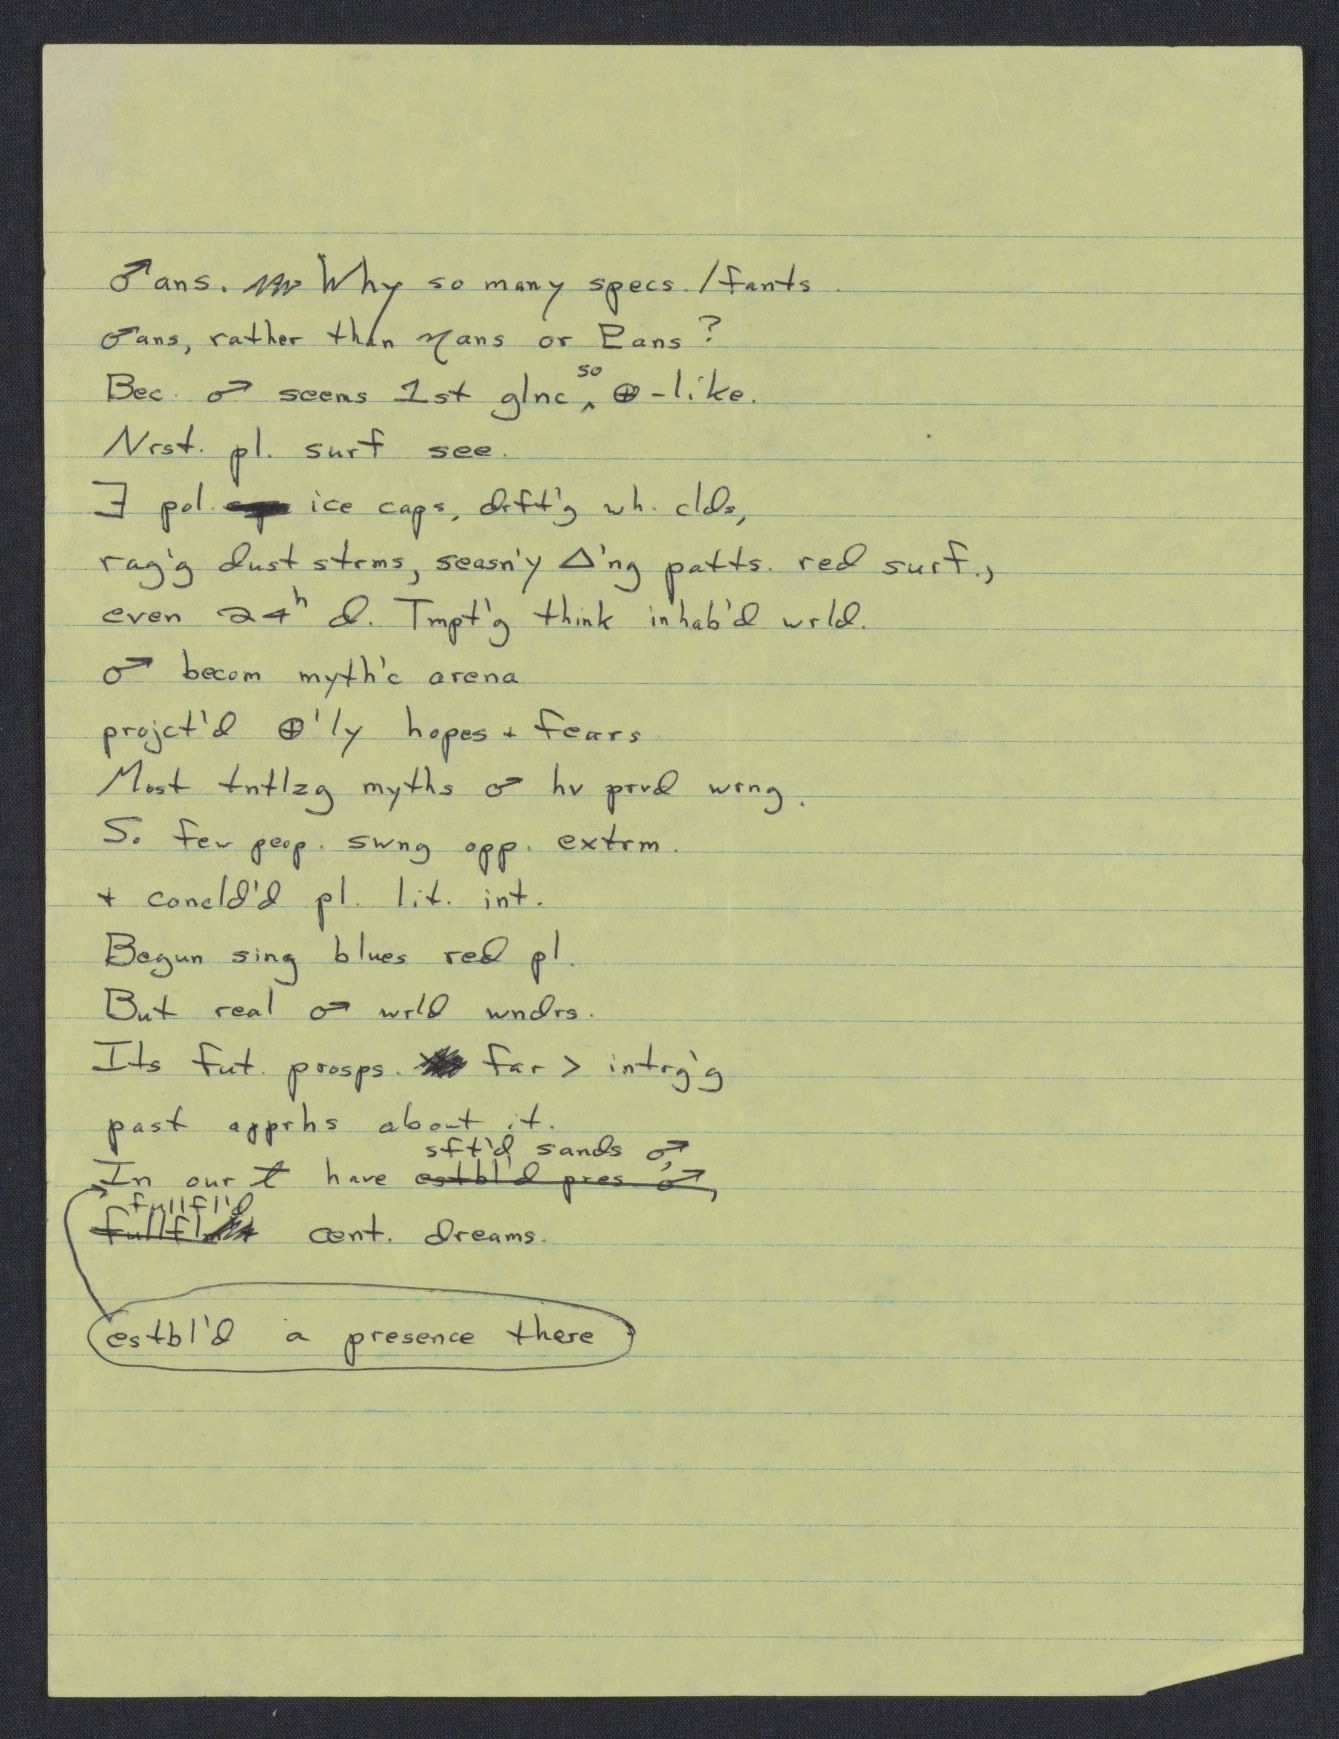 ♂ans. Why so many specs. / fants
♂ans, rather than ♄ans or ♇ans?
Bec. ♂ seems 1st glnc so ⊕-like.
Nrst. pl. surf see.
∃ pol. ice caps, drft'g wh. clds,
rag'g dust strms, seasn'y Δ'ng patts. red surf.,
even 24ʰ d. Tmpt'g think inhab'd wrld.
♂ becom myth'c arena
projct'd ⊕'ly hopes + fears
Most tntlzg myths ♂ hv prvd wrng.
So few peop. swng opp. extrm.
+ concld'd pl. lit. int.
Begun sing blues red pl.
But real ♂ wrld wndrs.
Its fut. prosps. far > intrg'g
past apprhs about it.
sft'd sands ♂,
In our t have estbl'd pres ♂,
fullfl'd
cent. dreams.
estbl'd a presence there